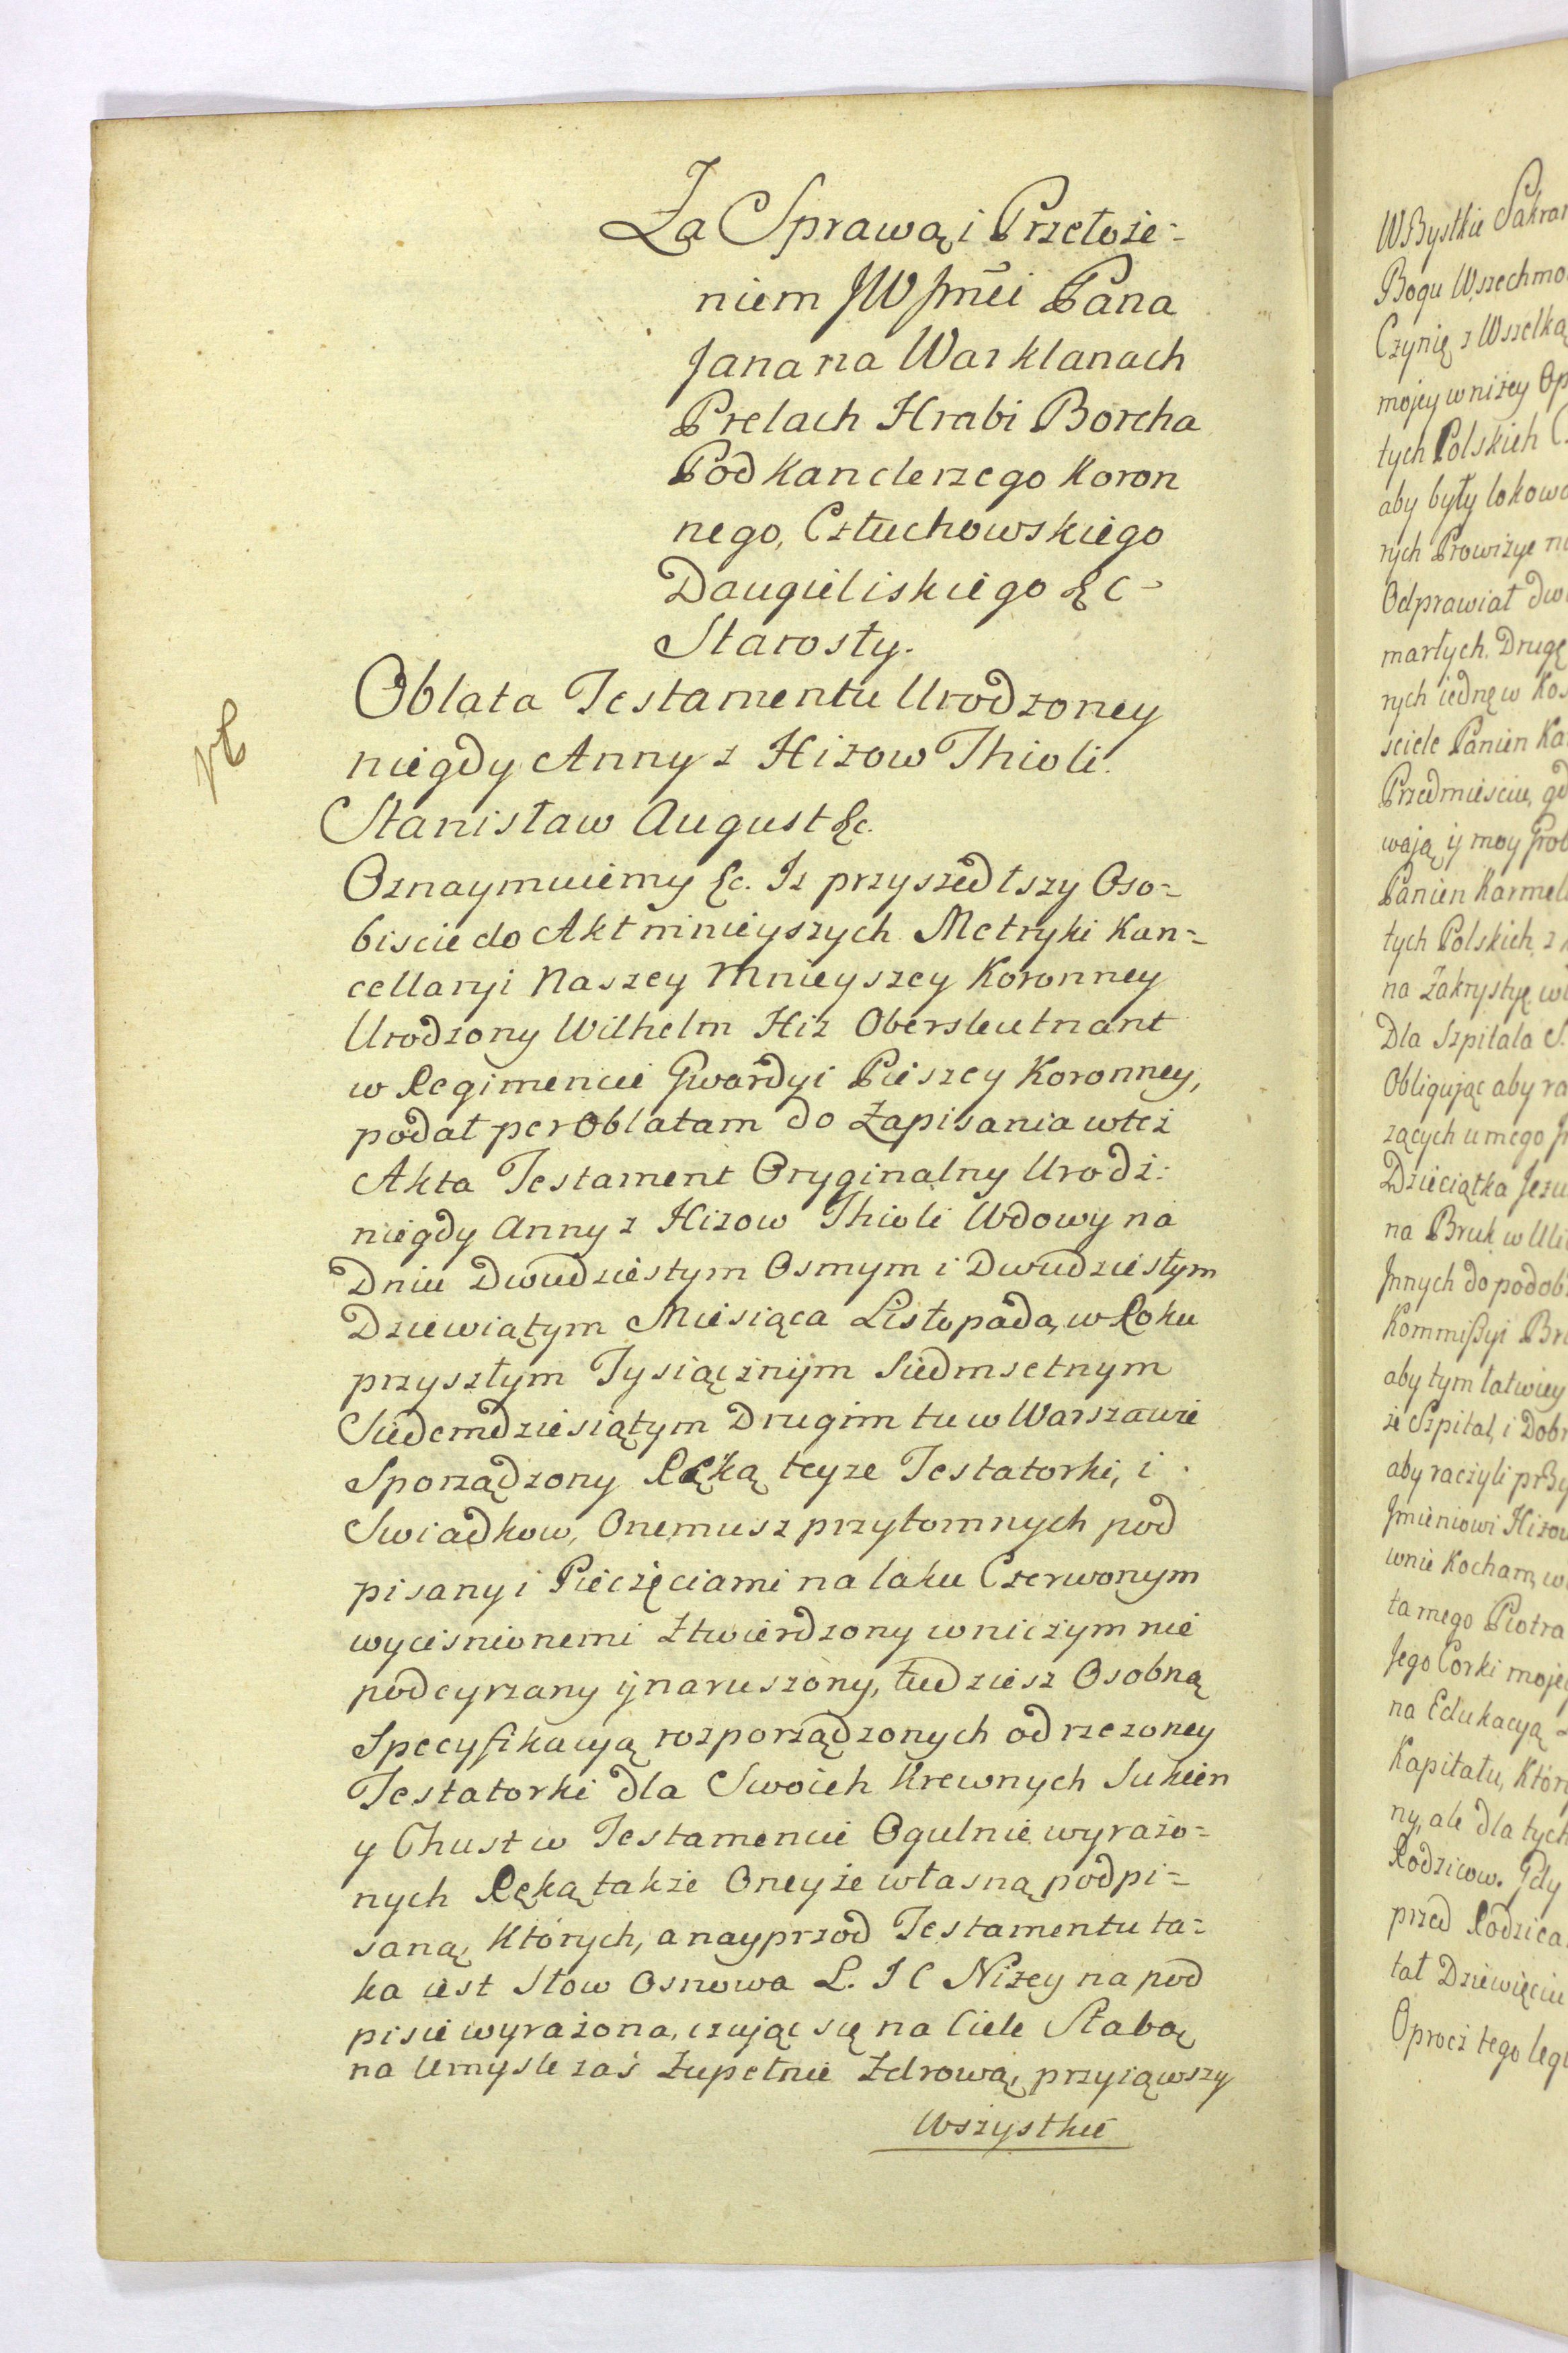 Za Sprawą i Przełoże-
niem JW Jmći Pana
Jana na Warklanach
Prelach Hrabi Borcha
Podkanclerzego Koron
nego, Człuchowskiego
Daugieliskiego &c-
Starosty.
Oblata Testamentu Urodzoney
niegdy Anny z Hizow Thioli.
Stanisław August &c.
Oznaymuiemy &c. Iz przyszedłszy Oso=
biscie do Akt mnieyszych Metryki Kan=
cellaryi Naszey Mnieyszey Koronney
Urodzony Wilhelm Hiz Obersleutnant
w Regimencie Gwardyi Pieszey Koronney,
podał per Oblatam do Zapisania w też
Akta Testament Oryginalny Urodz:
niegdy Anny z Hizow Thioli Wdowy na
Dniu Dwudziestym Osmym i Dwudziestym
Dziewiątym Miesiąca Listopada, w Roku
przyszłym Tysiącznym Siedmsetnym
Siedemdziesiątym Drugim tu w Warszawie
Sporządzony Ręką teyze Testatorki, i
Swiadkow, Onemusz przytomnych pod
pisany i Pieczęciami na laku Czerwonym
wycisnionemi Ztwierdzony w niczym nie
podeyrzany ij naruszony, tudziesz Osobną
Specyfikacyą rozporządzonych od rzeczoney
Testatorki dla Swoich Krewnych Sukien
y Chust w Testamencie Ogulnie wyrażo=
nych Ręką także Oneyże własną podpi=
saną, Których, a nayprzod Testamentu ta=
ka iest Słow Osnowa L. J C Niżey na pod
pisie wyrażona, czując się na Ciele Słabą
na Umysle zaś Zupełnie Zdrową, przyiąwszy
Wszystkie
Wszystkie
Bogu Wszechmo
Czynię z Wszelką
mojey w niżey
tych Polskich
aby były
rych Prowizye
Odprawiał
marłych. Drugę
rych iednę w
sciele Panien
Przedmiesciu,
wają ij moy
Panien
tych Polskich, z
na Zakrystyę
Dla Szpitala S.
Obligując aby
zących u mego
Dzieciątka
na Bruk w
Innych do
Kommissyi
aby tym łatwiey
że Szpital, i
aby raczyli
Imieniowi
wnie Kocham,
ta mego Piotra
Jego Corki
na Edukacyą
Kapitału,
ny, ale dla tych
Rodzicow. Gdy
przed
tał Dziewięciu
Oprocz tego